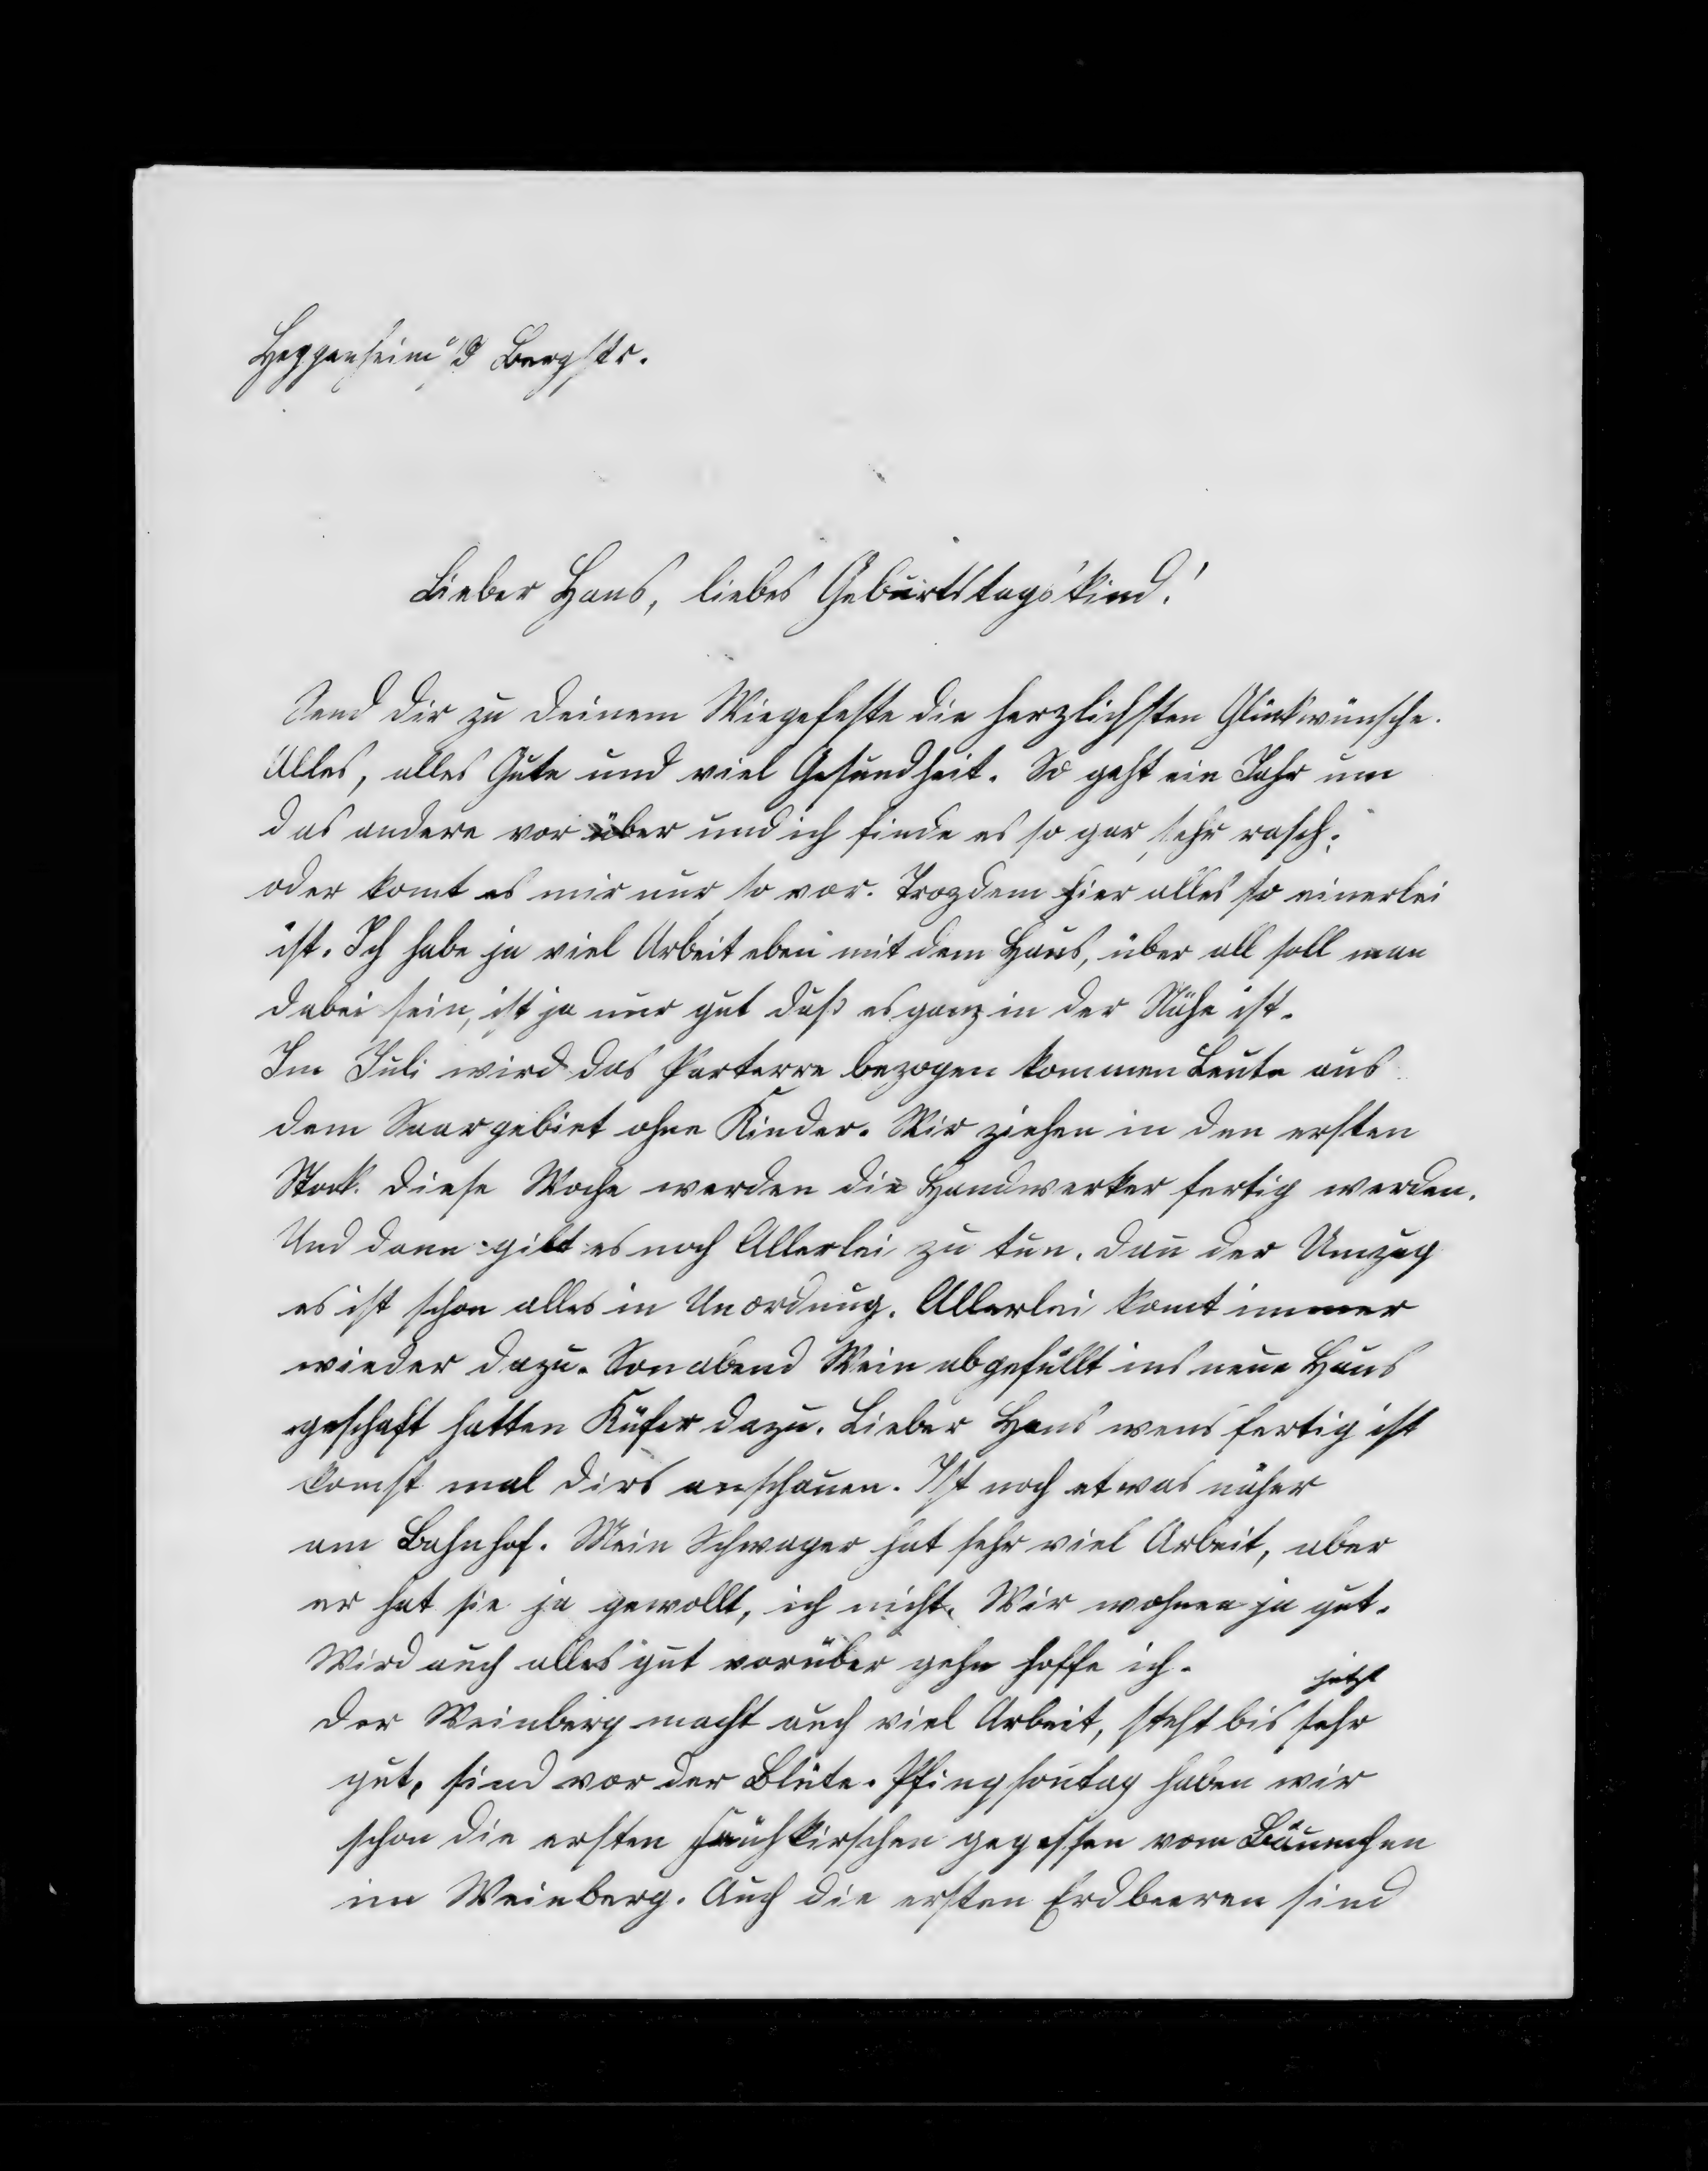 Heppenheim a/d Bergstr.
Lieber Hans, liebes Geburtstagskind!
Send Dir zu deinem Wiegefeste die herzlichsten Glückwünsche.
Alles, alles Gute und viel Gesundheit. So geht ein Jahr um
das andere vorüber und ich finde es so gar sehr rasch;
oder komt es mir nur so vor. Trozdem hier alles so einerlei
ist. Ich habe ja viel Arbeit eben mit dem Haus, über all soll man
dabei sein, ist ja nur gut daß es ganz in der Nähe ist.
Im Juli wird das Parterre bezogen kommen Leute aus
dem Saargebiet ohne Kinder. Wir ziehen in den ersten
Stock. Diese Woche werden die Handwerker fertig werden.
Und dann gibt es noch Allerlei zu tun. Dan̄ der Umzug
es ist schon alles in Unordnung. Allerlei komt immer
wieder dazu. Sonabend Wein abgefüllt ins neue Haus
geschaft hatten Küfer dazu. Lieber Hans wens fertig ist
komst mal dirs anschauen. Ist noch etwas näher
am Bahnhof. Mein Schwager hat sehr viel Arbeit, aber
er hat sie ja gewollt, ich nicht. Wir wohnen ja gut.
Wird auch alles gut vorüber gehn hoffe ich.
jetzt
Der Weinberg macht auch viel Arbeit, steht bis sehr
gut, sind vor der Blüte. Pfingsontag haben wir
schon die ersten Frühkirschen gegessen vom Bäumchen
im Weinberg. Auch die ersten Erdbeeren sind